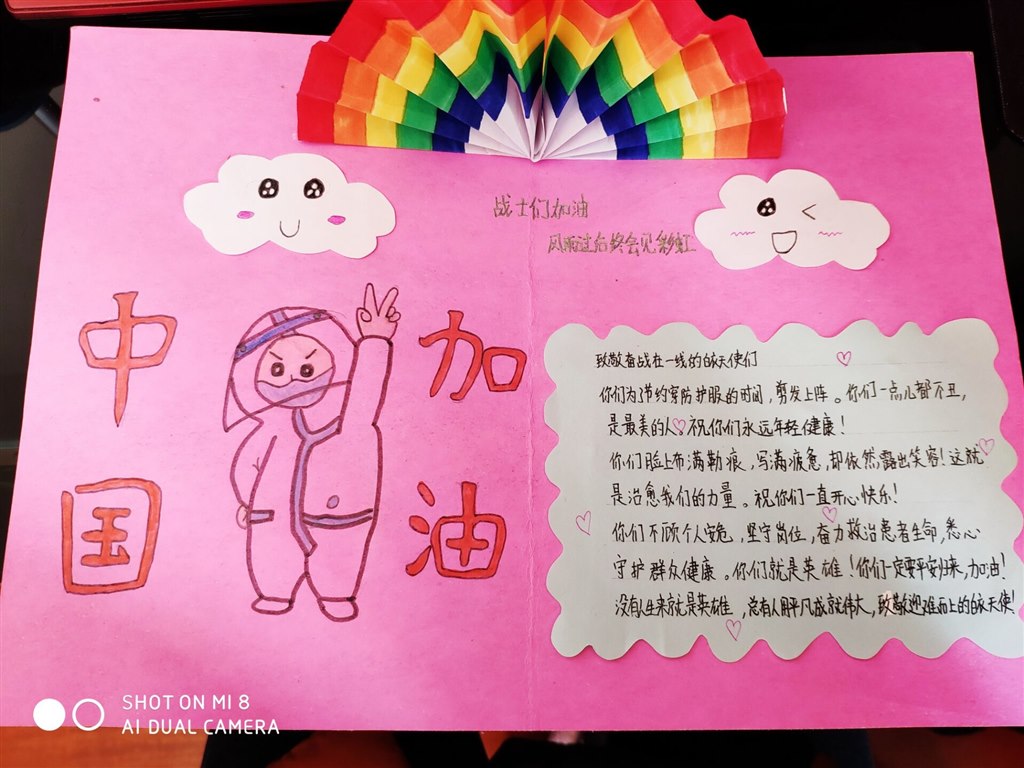 战士们加油
风雨过后终会见彩虹
中国
加油
致敬奋战在一线的白衣天使们
你们为节约穿防护服的时间，剪发上阵。你们一点儿都不丑，
是最美的人。祝你们永远年轻健康！
你们脸上布满勒痕，写满疲惫，却依然露出笑容！这就
是治愈我们的力量。祝你们一直开心快乐！
你们不顾个人安危，坚守岗位，奋力救治患者生命，悉心
守护群众健康。你们就是英雄！你们一定要平安归来，加油！
没有人生来就是英雄，总有人用平凡成就伟大，致敬迎难而上的白衣天使！
SHOT ON MI 8
AI DUAL CAMERA